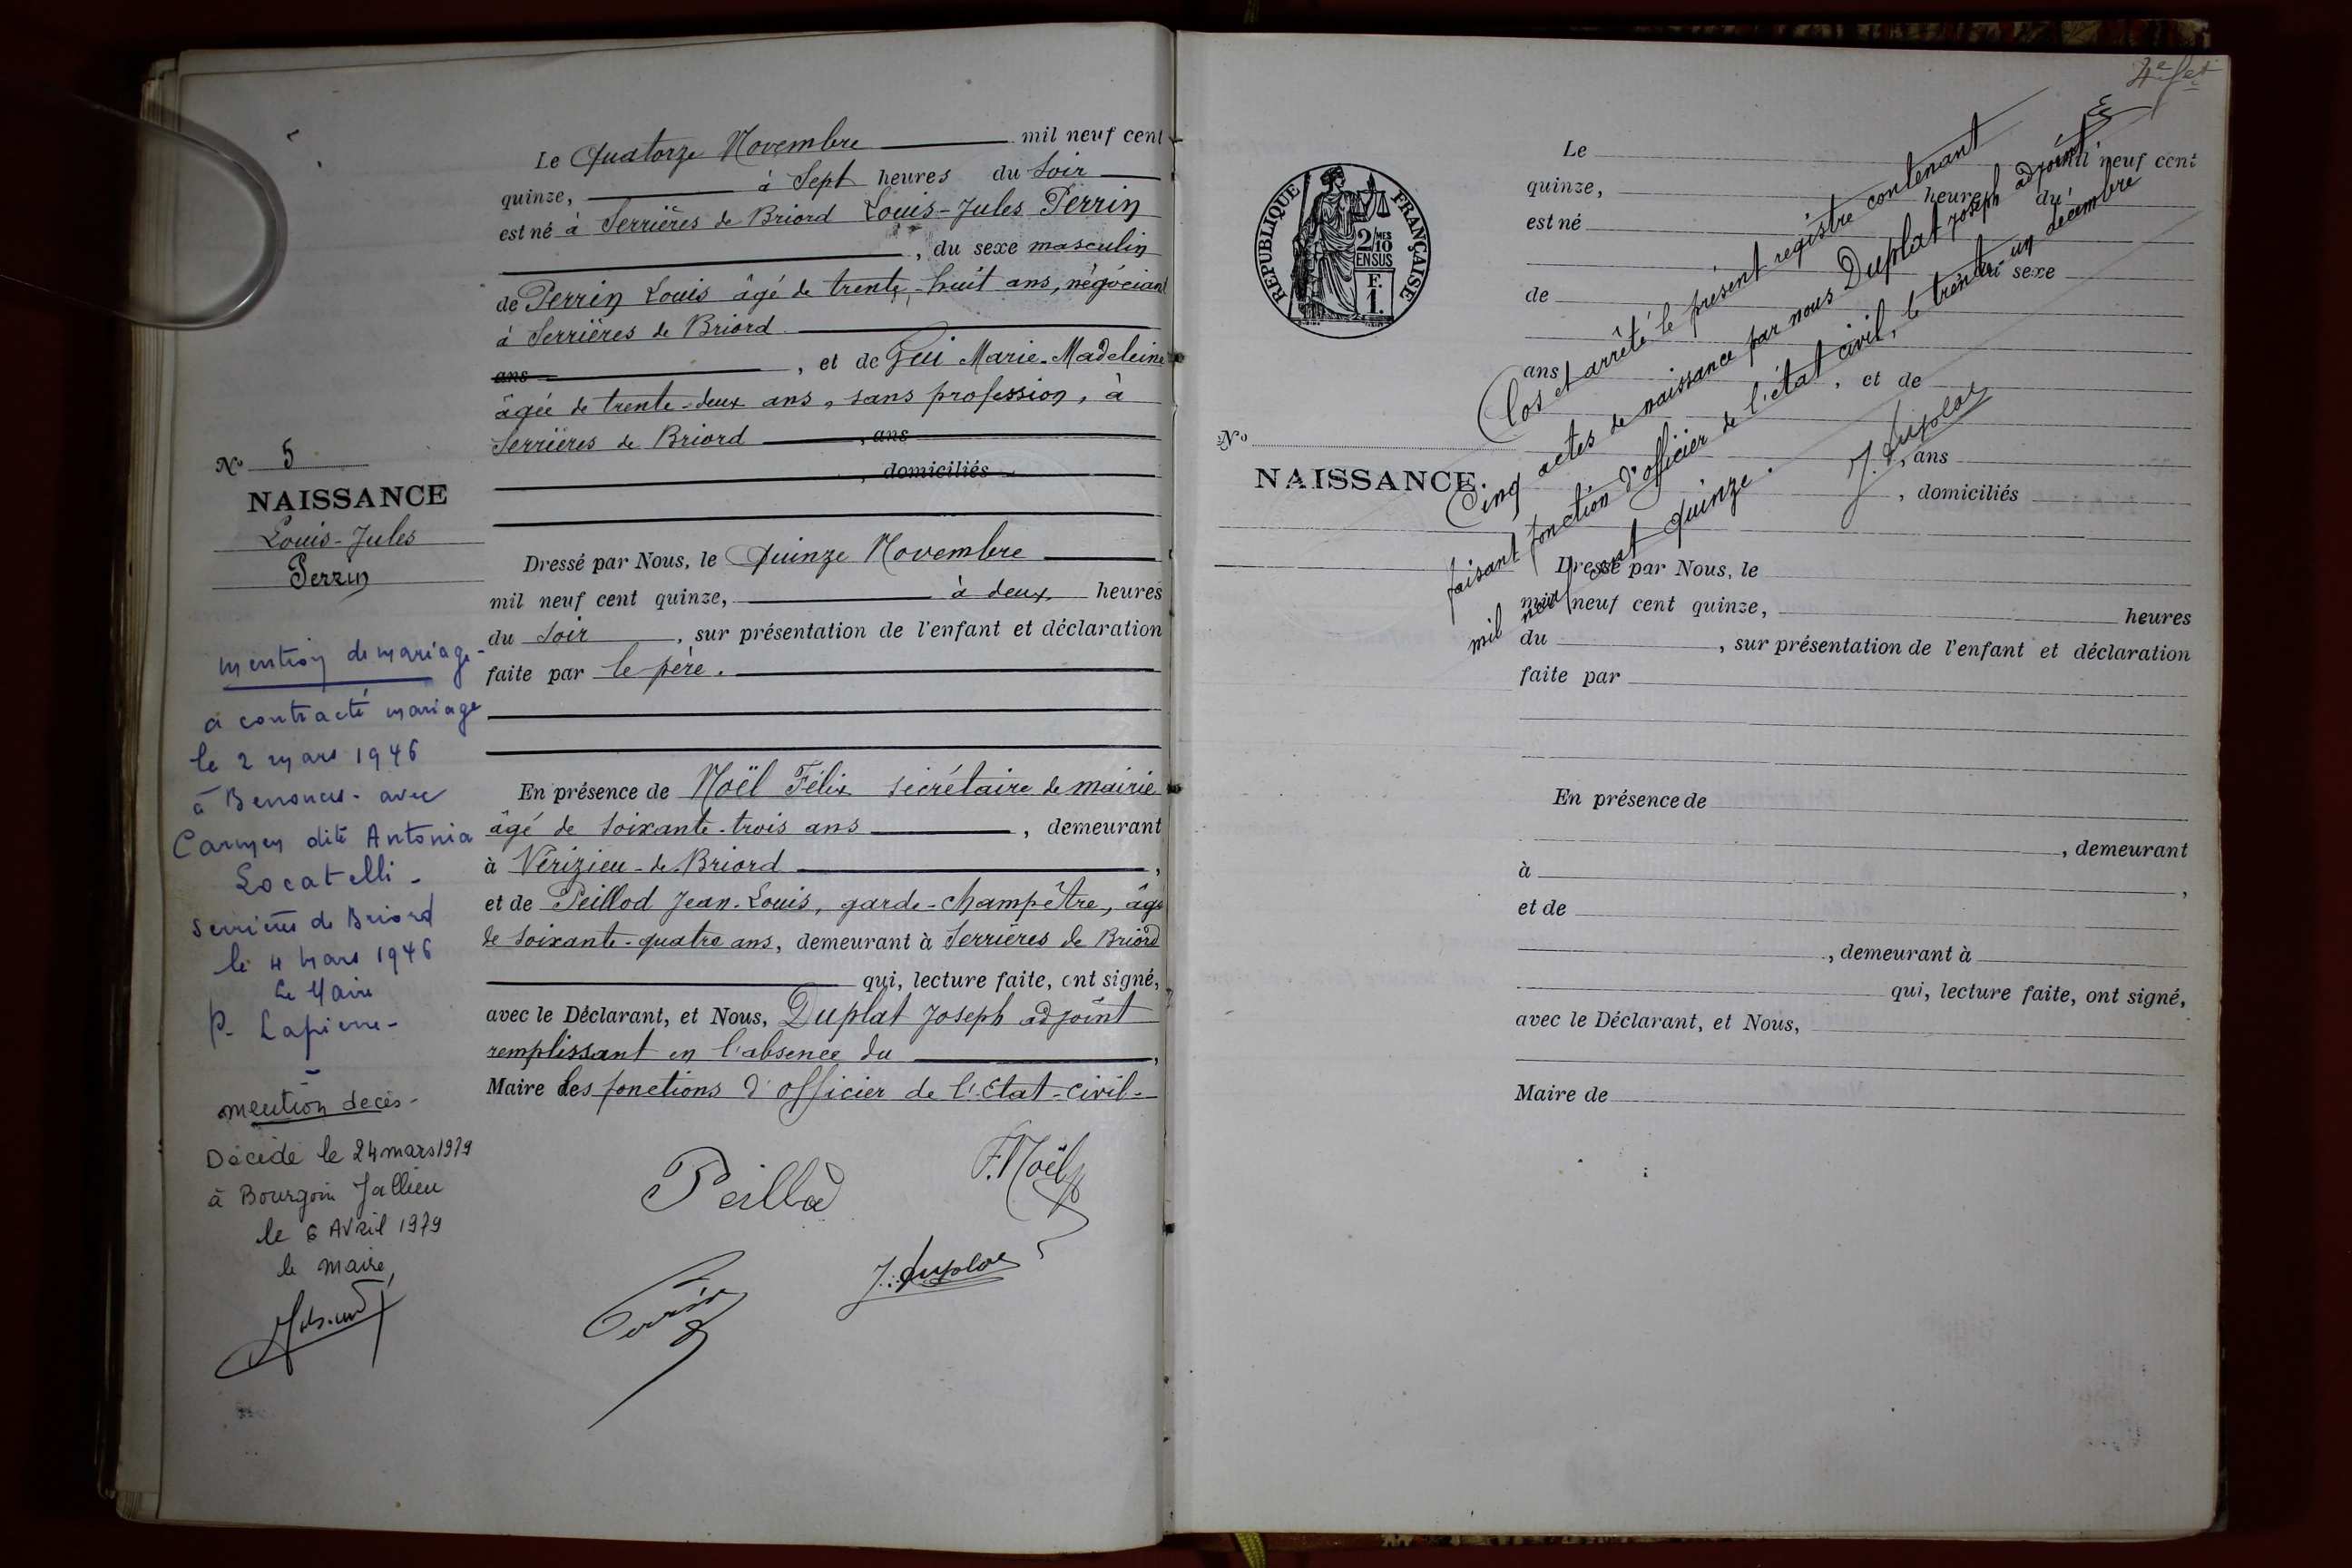 Le Quatorze Novembre mil neuf cent
quinze, à Sept heures du Soir
est né à Serrières de Briord Louis-Jules Perrin
, du sexe masculin
de Perrin Louis âgé de trente-huit ans, négociant
à Serrières de Briord
ans , et de Gui Marie-Madeleine
âgée de trente-deux ans, sans profession, à
Serrières de Briord , ans
, domiciliés
No 5
NAISSANCE
Louis-Jules
Perrin
Dressé par Nous, le Quinze Novembre
mil neuf cent quinze, à deux heures
du Soir , sur présentation de l'enfant et déclaration
faite par le père.
En présence de Noël Félix secrétaire de mairie
âgé de soixante-trois ans , demeurant
à Vérizieu-de-Briord ,
et de Peillod Jean-Louis, garde-champêtre, âgé
de soixante-quatre ans, demeurant à Serrières de Briord
qui, lecture faite, ont signé,
avec le Déclarant, et Nous, Duplat Joseph adjoint
remplissant en l'absence du ,
Maire des fonctions d'officier de l'Etat-civil-
Peillod
F. Noël
Perrin
J. Duplat
mention de mariage-
a contracté mariage
le 2 mars 1946
à Benonces- avec
Carmen dite Antonia
Locatelli-
Serrières de Briord
le 4 Mars 1946
Le Maire
P. Lapierre-
mention decès-
Décédé le 24 mars 1979
à Bourgoin Jallieu
le 6 Avril 1979
le maire,
4e
REPUBLIQUE FRANÇAISE
2/MES
10
EN SUS
F.
1.
Le mil neuf cent
quinze, heures du
est né
du sexe
de
ans , et de
, ans
, domiciliés
No
NAISSANCE
Clos et arrêté le présent registre contenant
Cinq actes de naissance par nous Duplat Joseph adjoint
faisant fonction d'officier de l'état civil, le trente-un décembre
mil neuf cent quinze.
J. Duplat
Dressé par Nous, le
mil neuf cent quinze, heures
du , sur présentation de l'enfant et déclaration
faite par
En présence de
, demeurant
à ,
et de
, demeurant à
qui, lecture faite, ont signé,
avec le Déclarant, et Nous,
Maire de